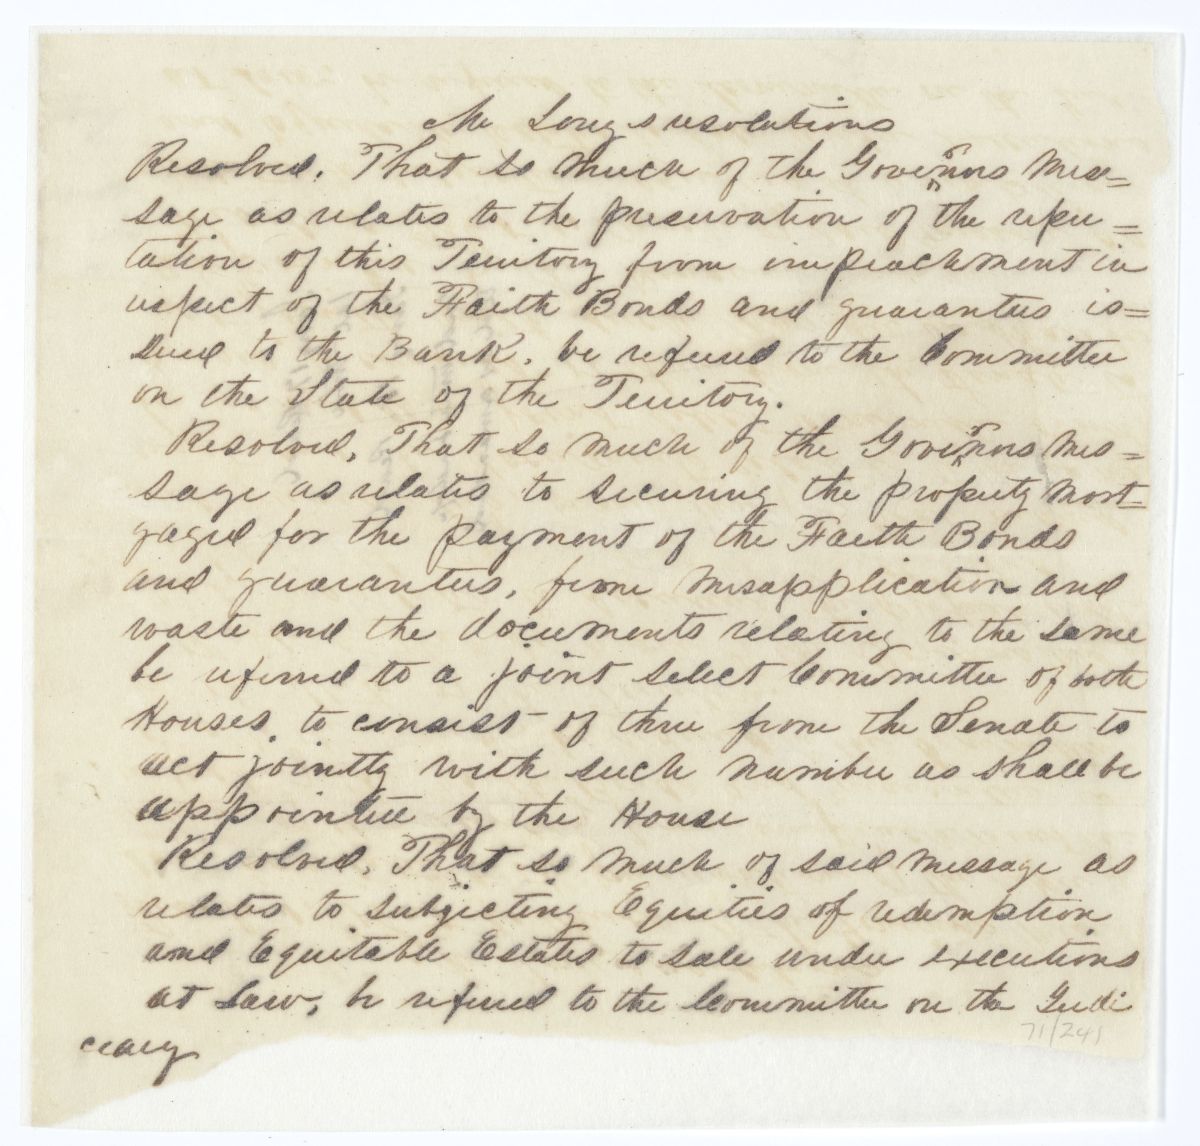 Mr Longs resolutions
Resolved. That so much of the Governors Mes=
sage as relates to the preservation of the repu=
tation of this Territory from impeachment in
respect of the Faith Bonds and guarantees is=
sued to the Bank. be referred to the Committee
on the State of the Territory.
Resolved, That so much of the Governors Mes=
sage as relates to securing the property Mort=
gaged for the payment of the Faith Bonds
and guarantees, from misapplication and
waste and the documents relating to the same
be referred to a joint select Committee of both
Houses, to consist of three from the Senate to
act jointly with such number as shall be
appointed by the House
Resolved, That so much of said Message as
relates to subjecting Equities of redemption
and Equitable Estates to sale under executions
at Law, be referred to the Committee on the Judi
ciary
71/241